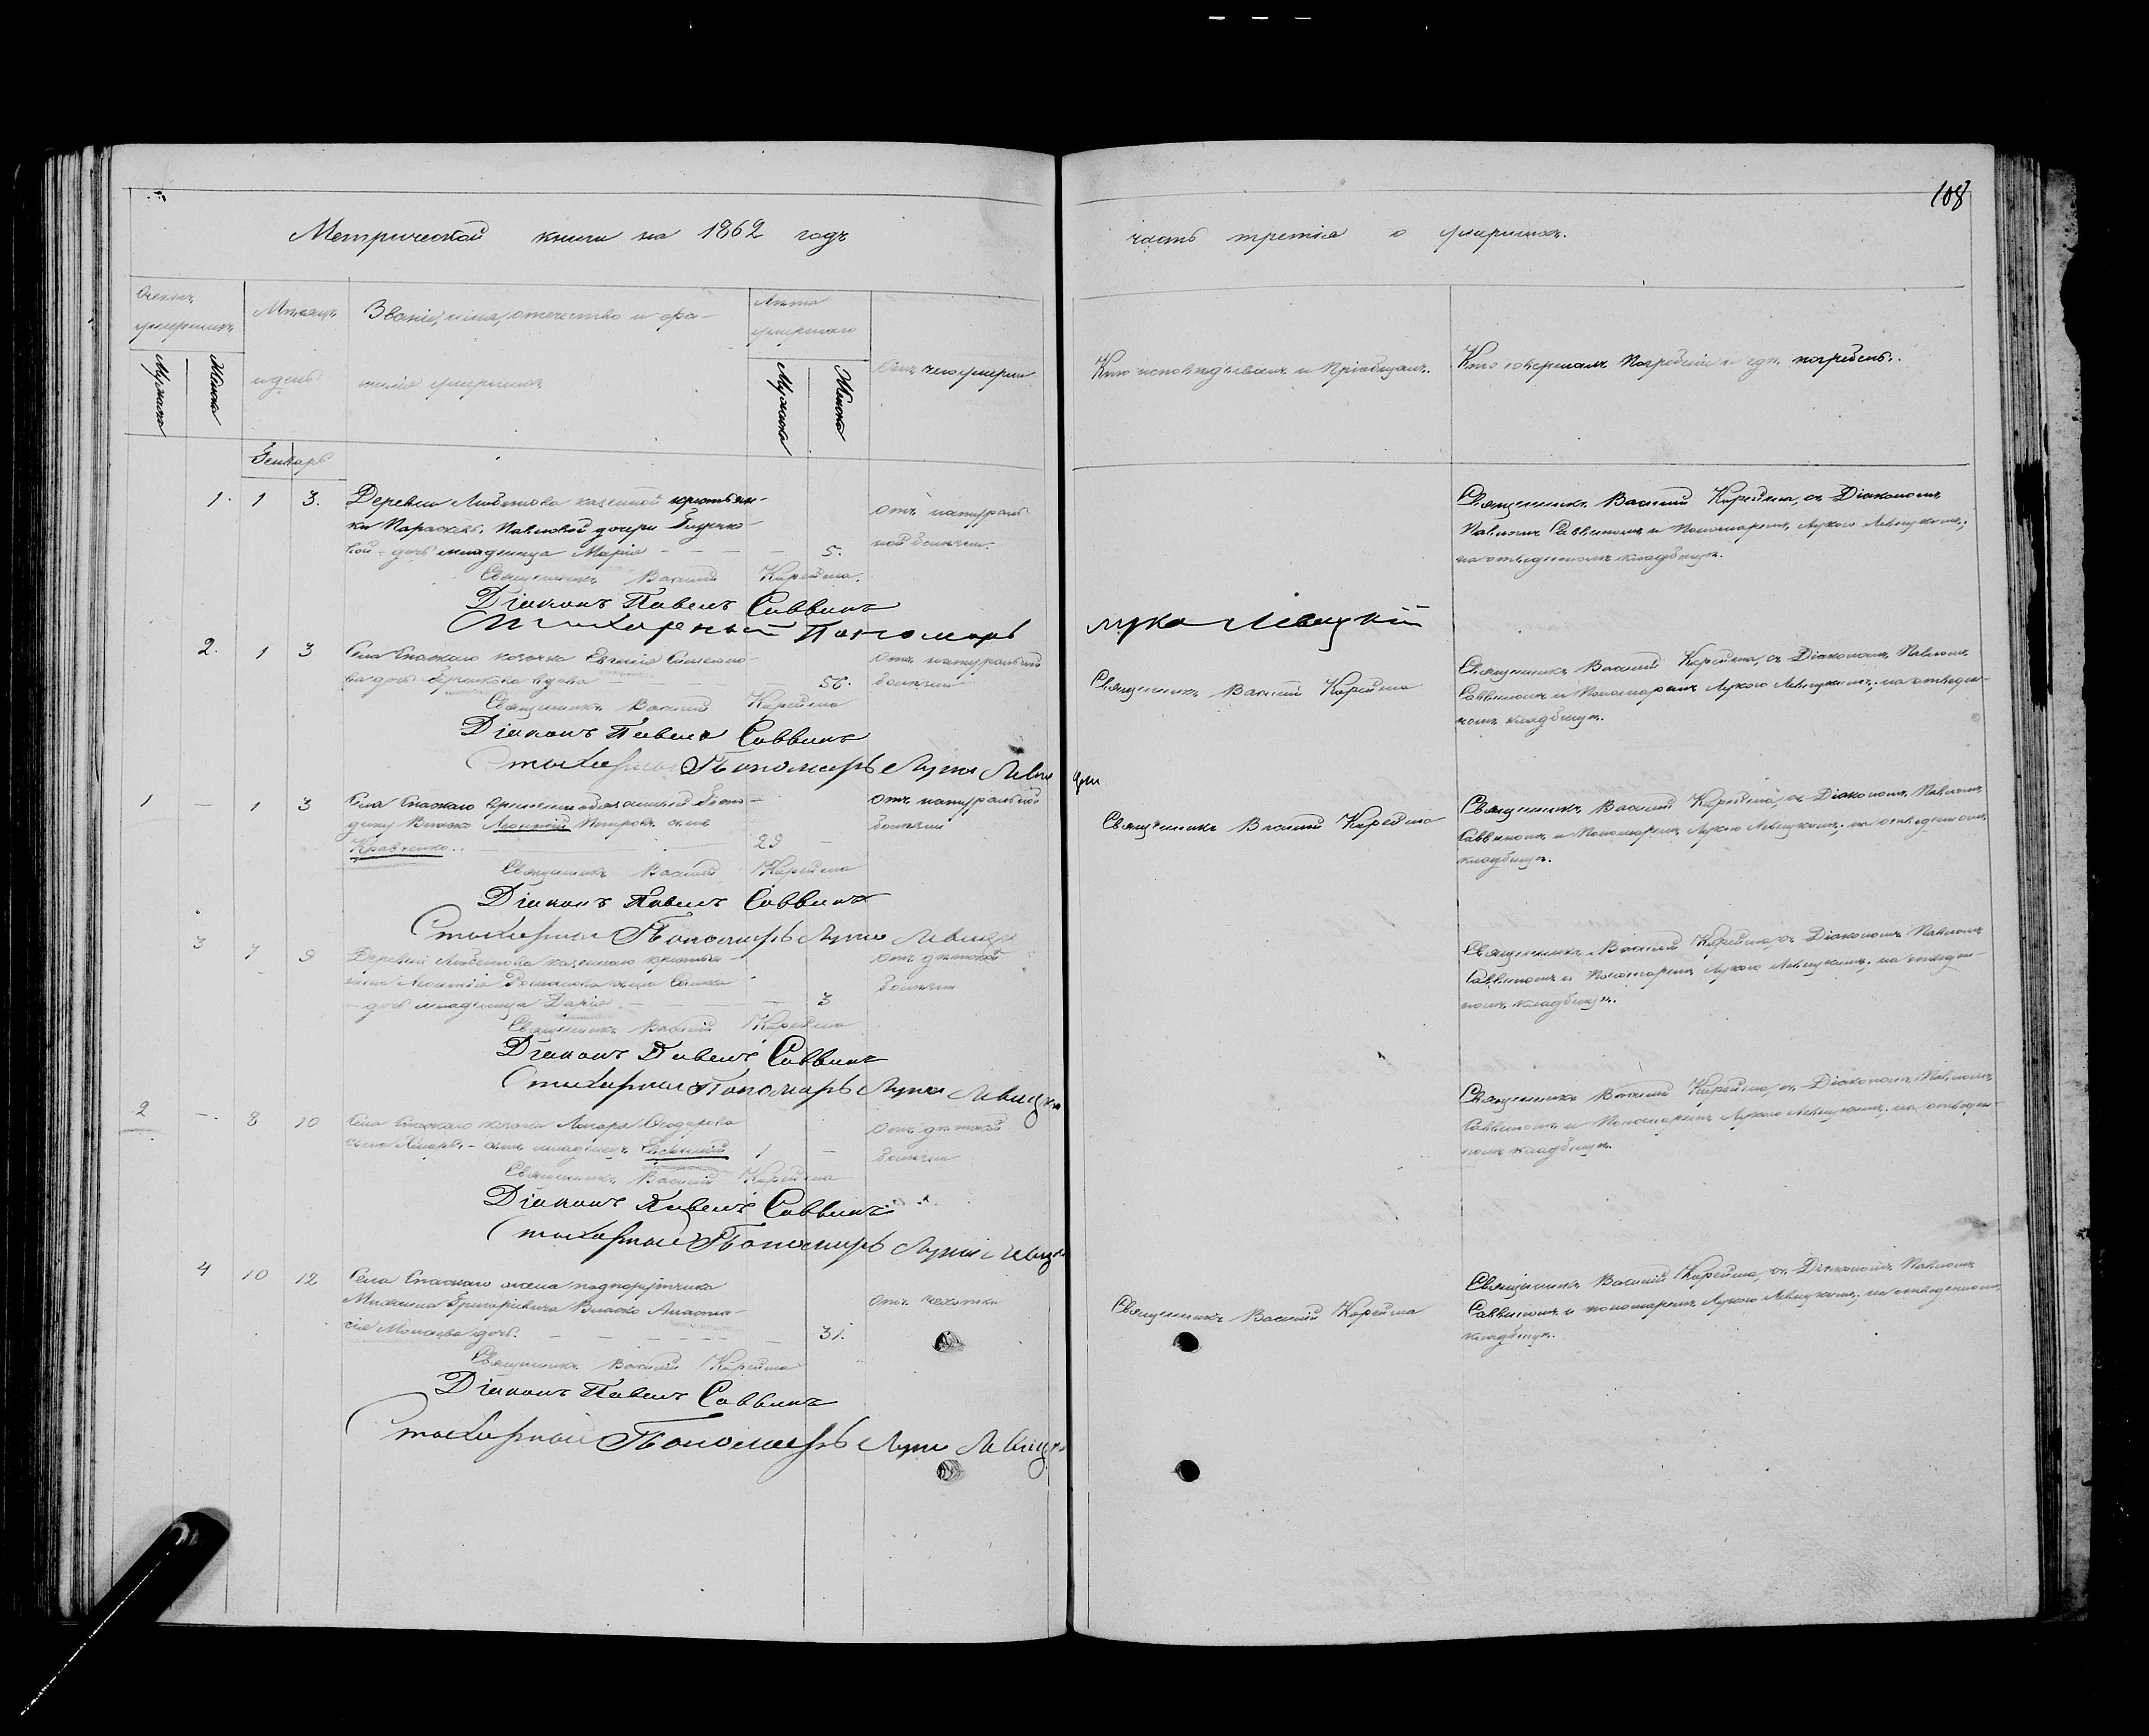 108
Метрической книги на 1862 годъ
часть третія о умершихъ.
умершихъ
Мужеска
Женска
Мѣсяцъ
и день
Званіе, имя, отечество и фа-
милія умершихъ
Лѣта
умершаго
Мужеска
Женска
Отъ чего умерли
Кто исповѣдывалъ и Пріобщалъ.
Кто совершалъ Погребеніе и гдѣ погребены.
Генварь
1. 1 3. Деревни казенной крестьян-
ки Параскевы Павловой дочери
вой - дочь младенца Марія 5.
отъ натураль
ной болѣзни.
Священникъ Василій съ Діакономъ
Павломъ Саввинымъ и Пономаремъ Лукою Левицкимъ,
на отведенномъ кладбищѣ.
Священникъ Василій
Діаконъ Павелъ Саввинъ
Стихарный Пономарь Лука Левицкій
2. 1 3 Села Спаскаго козачка Евгенія
ва дочь вдова 56.
отъ натуральной
болѣзни
Священникъ Василій
Священникъ Василій съ Діакономъ Павломъ
Саввинымъ и Пономаремъ Лукою Левицкимъ, на отведен-
номъ кладбищѣ.
Священникъ Василій
Діаконъ Павелъ Саввинъ
Стихарный Пономарь Лука Левицкій
1 — 1 3 Села Спаскаго временнообязанный
Власко Леонтій Петровъ сынъ
Кравченко. 29 —
отъ натуральной
болѣзни
Священникъ Василій
Священникъ Василій съ Діакономъ Павломъ
Саввинымъ и Пономаремъ Лукою Левицкимъ, на отведенномъ
кладбищѣ.
Священникъ Василій
Діаконъ Павелъ Саввинъ
Стихарный Пономарь Лука Левицкій
3 7 9 Деревни казеннаго крестья-
нина Леонтія Романова сына
- дочь младенца Дарія 3
отъ дѣтской
болѣзни
Священникъ Василій съ Діакономъ Павломъ
Саввинымъ и Пономаремъ Лукою Левицкимъ, на отведен-
номъ кладбищѣ.
Священникъ Василій
Діаконъ Павелъ Саввинъ
Стихарный Пономарь Лука Левицкій
2 — 8 10 Села Спаскаго козака Федорова
сына - сынъ младенецъ 1 —
отъ дѣтской
болѣзни
Священникъ Василій съ Діакономъ Павломъ
Саввинымъ и Пономаремъ Лукою Левицкимъ, на отведен-
номъ кладбищѣ.
Священникъ Василій
Діаконъ Павелъ Саввинъ
Стихарный Пономарь Лука Левицкій
4 10 12 Села Спаскаго жена подпоручика
Михаила Григоріевича Власко Анаста-
сія дочь. 31.
отъ чахотки
Священникъ Василій
Священникъ Василій съ Діакономъ Павломъ
Саввинымъ и пономаремъ Лукою Левицкимъ, на отведенномъ
кладбищѣ.
Священникъ Василій
Діаконъ Павелъ Саввинъ
Стихарный Пономарь Лука Левицкій